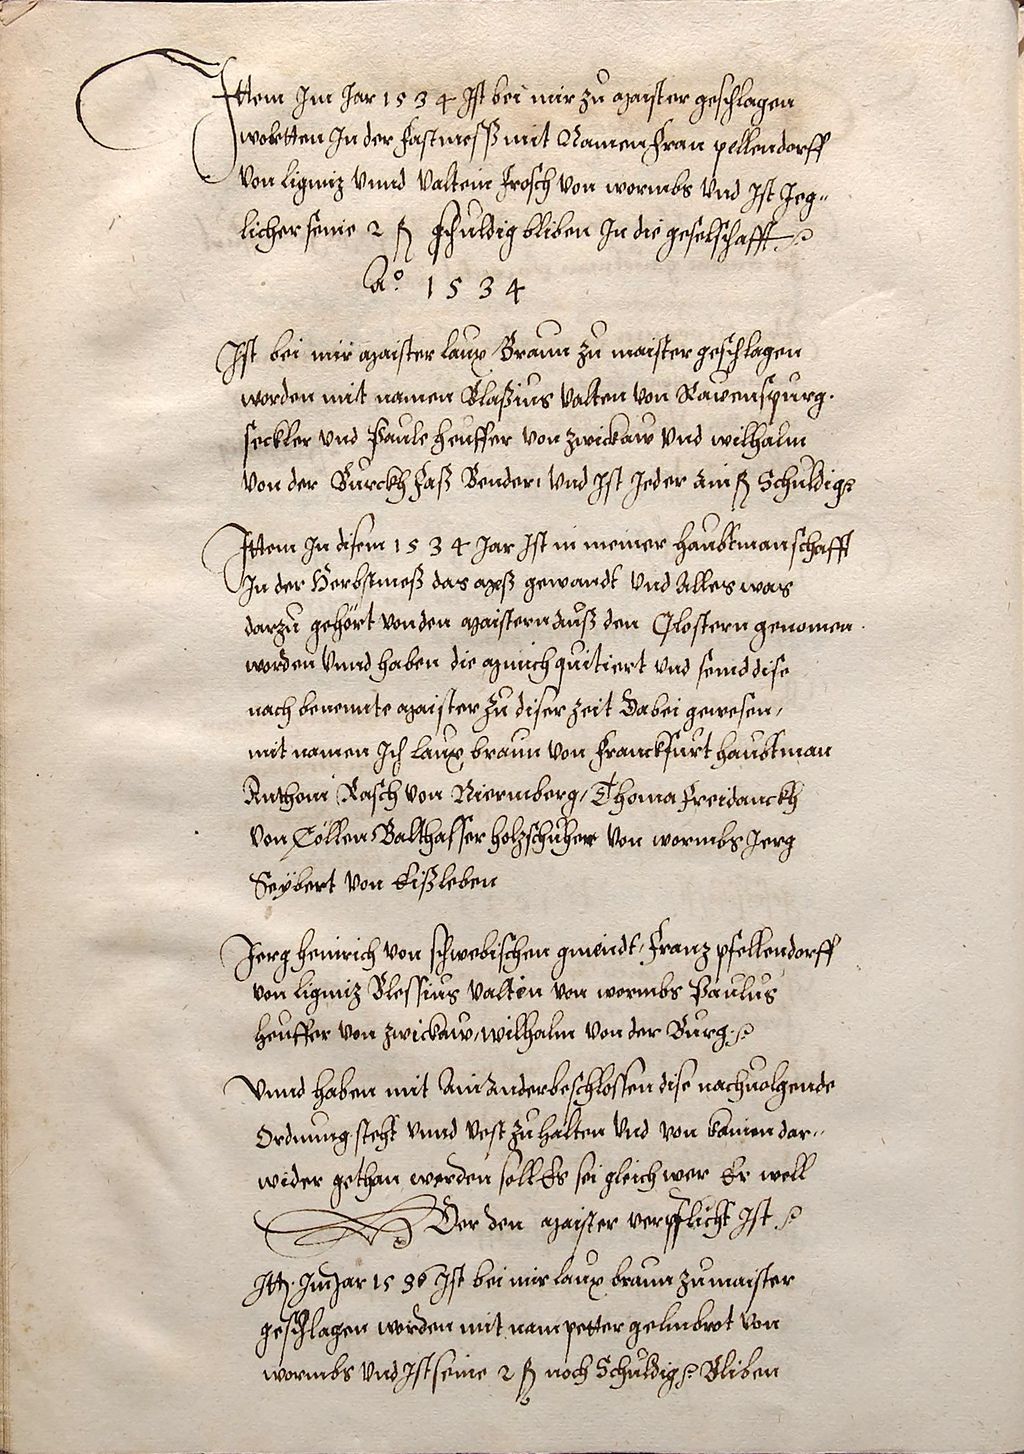 Ittem Im Jar 1534 Ist bei mir zu Maister geschlagen
wordten In der Fastmesß mit Namen Fran pfellendorff
von ligniz Vnnd Valtein Frosch von wormbs Vnd Ist Jeg-
licher seine 2 fl schuldig bliben In die geselschafft
Aº 1534
Ist bei mir Maister laux Braun zu maister geschlagen
worden mit namen Blasius Valten von Ravenspurg.
seckler vnd Paule heuffer von Zwickaw Vnd wilhalm
von der Burckh Faß Bender, Vnd Ist Jeder ain fl Schuldig
Ittem In disem 1534 Jar Ist in meiner haubtmanschafft
In der Herbstmeß das Meß gewandt Vnd Alles was
darzu gehört von den Maistern auß den Clostern genomen.
worden Vnnd haben die Münich quitiert vnd seind dise
nach benente Maister zu diser zeit Dabei gewesen,
mit namen Ich laux braun von Franckfurt haubtman
Anthoni Rasch von Niermberg, Thoma Freidanckh
von Cöllen, Balthasser holzschuher von wormbs Jerg
Seÿbert von Eißleben
Jerg heinrich von schwebischen gmeindt, Franz pfellendorff
von ligniz Blessius Valtin von wormbs Paulus
heuffer von Zwickaw, wilhalm von der Burg.
Vnnd haben mit Ain Ander beschlossen dise nachuolgende
Ordnung steht vnnd Vest zu halten Vnd von kainen dar-
wider gethan werden soll Es sei gleich wer Er well
Der den Maister verpflicht Ist
Im Jar 1536 Ist bei mir laux braun zu maister
geschlagen worden mit nam petter gelnbrot von
wormbs Vnd Ist seine 2 fl noch Schuldig Bliben